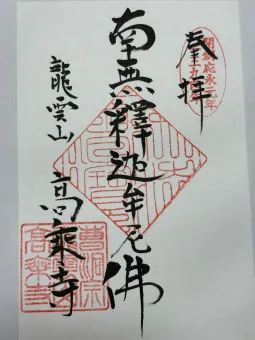 奉拝
南無釋迦牟尼佛
龍雲山
高乗寺